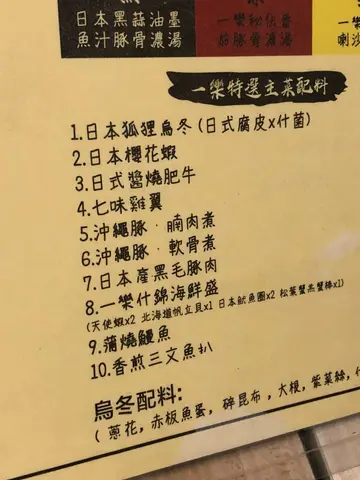 日本黑蒜油墨
魚汁豚骨濃湯
一樂特選主菜配料
1.日本狐狸烏冬(日式腐皮x什菌)
2.日本櫻花蝦
3.日式醬燒肥牛
4.七味雞翼
5.沖繩豚．腩肉煮
6.沖繩豚．軟骨煮
7.日本產黑毛豚肉
8.一樂什錦海鮮盛
(天使蝦x2 北海道帆立貝x1 日本魷魚圈x2 松葉蟹燕蟹棒x1)
9.蒲燒鰻魚
10.香煎三文魚扒
烏冬配料:
(蔥花,赤板魚蛋,碎昆布,大根,紫菜絲,